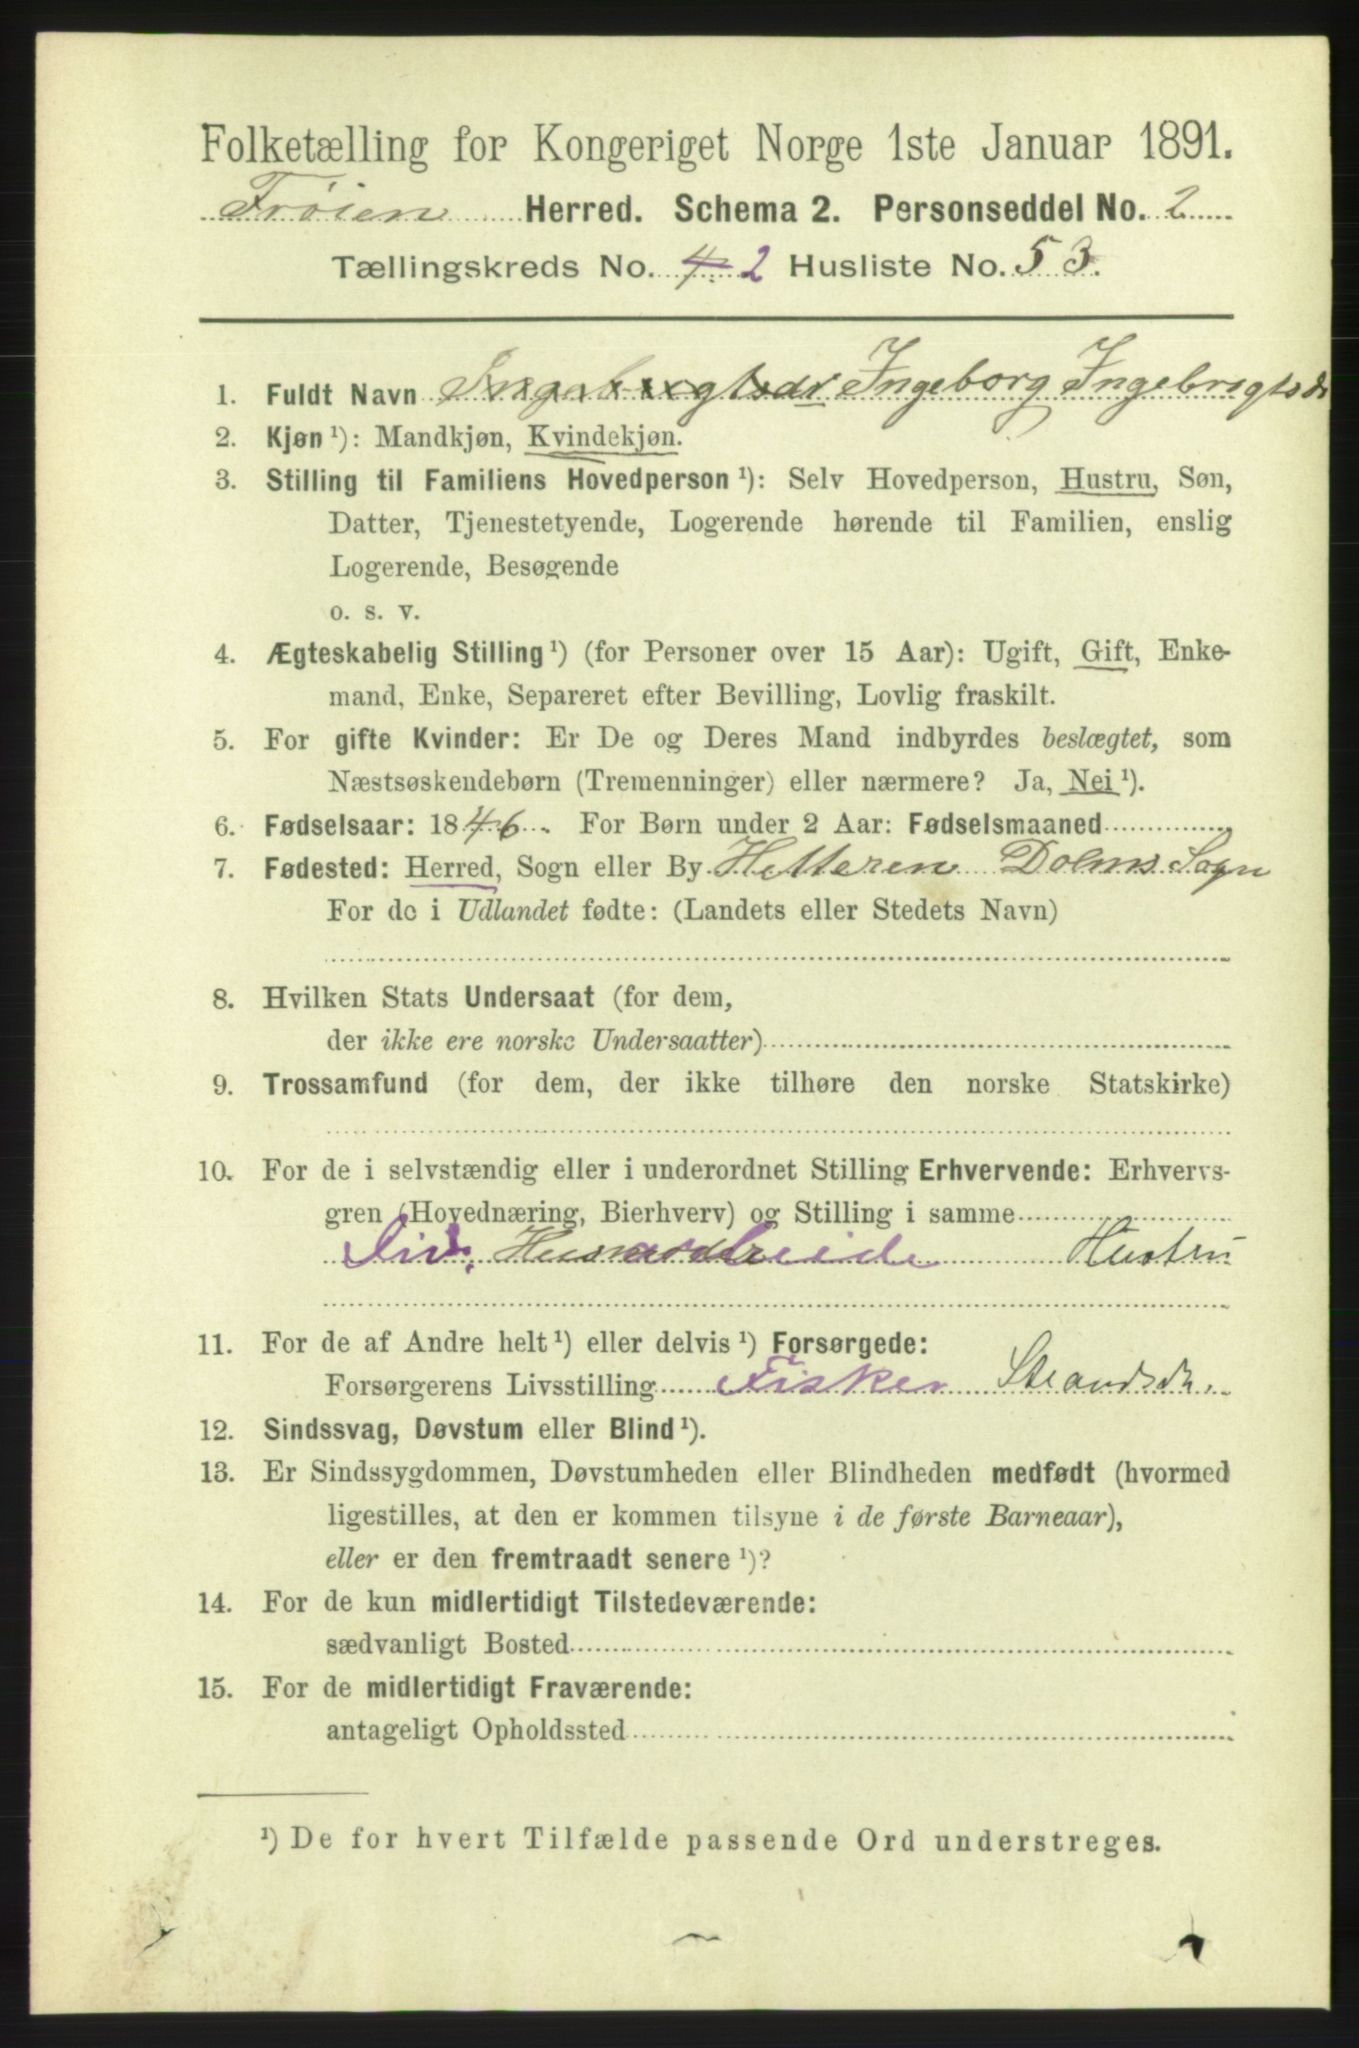 Folketælling for Kongeriget Norge 1ste Januar 1891.
Frøien Herred. Schema 2. Personseddel No. 2
Tællingskreds No. 4. 2 Husliste No. 53.
1. Fuldt Navn Ingebrigtsdr Ingeborg Ingebrigtsdr
2. Kjøn ¹): Mandkjøn, Kvindekjøn.
3. Stilling til Familiens Hovedperson ¹): Selv Hovedperson, Hustru, Søn,
Datter, Tjenestetyende, Logerende hørende til Familien, enslig
Logerende, Besøgende
o. s. v.
4. Ægteskabelig Stilling ¹) (for Personer over 15 Aar): Ugift, Gift, Enke-
mand, Enke, Separeret efter Bevilling, Lovlig fraskilt.
5. For gifte Kvinder: Er De og Deres Mand indbyrdes beslægtet, som
Næstsøskendebørn (Tremenninger) eller nærmere? Ja, Nei ¹).
6. Fødselsaar: 1846. For Børn under 2 Aar: Fødselsmaaned
7. Fødested: Herred, Sogn eller By Hitteren Dolms Sogn
For de i Udlandet fødte: (Landets eller Stedets Navn)
8. Hvilken Stats Undersaat (for dem,
der ikke ere norske Undersaatter)
9. Trossamfund (for dem, der ikke tilhøre den norske Statskirke)
10. For de i selvstændig eller i underordnet Stilling Erhvervende: Erhvervs-
gren (Hovednæring, Bierhverv) og Stilling i samme
Husarbeide Hustru
11. For de af Andre helt ¹) eller delvis ¹) Forsørgede:
Forsørgerens Livsstilling Fisker
12. Sindssvag, Døvstum eller Blind ¹).
13. Er Sindssygdommen, Døvstumheden eller Blindheden medfødt (hvormed
ligestilles, at den er kommen tilsyne i de første Barneaar),
eller er den fremtraadt senere ¹)?
14. For de kun midlertidigt Tilstedeværende:
sædvanligt Bosted
15. For de midlertidigt Fraværende:
antageligt Opholdssted
¹) De for hvert Tilfælde passende Ord understreges.